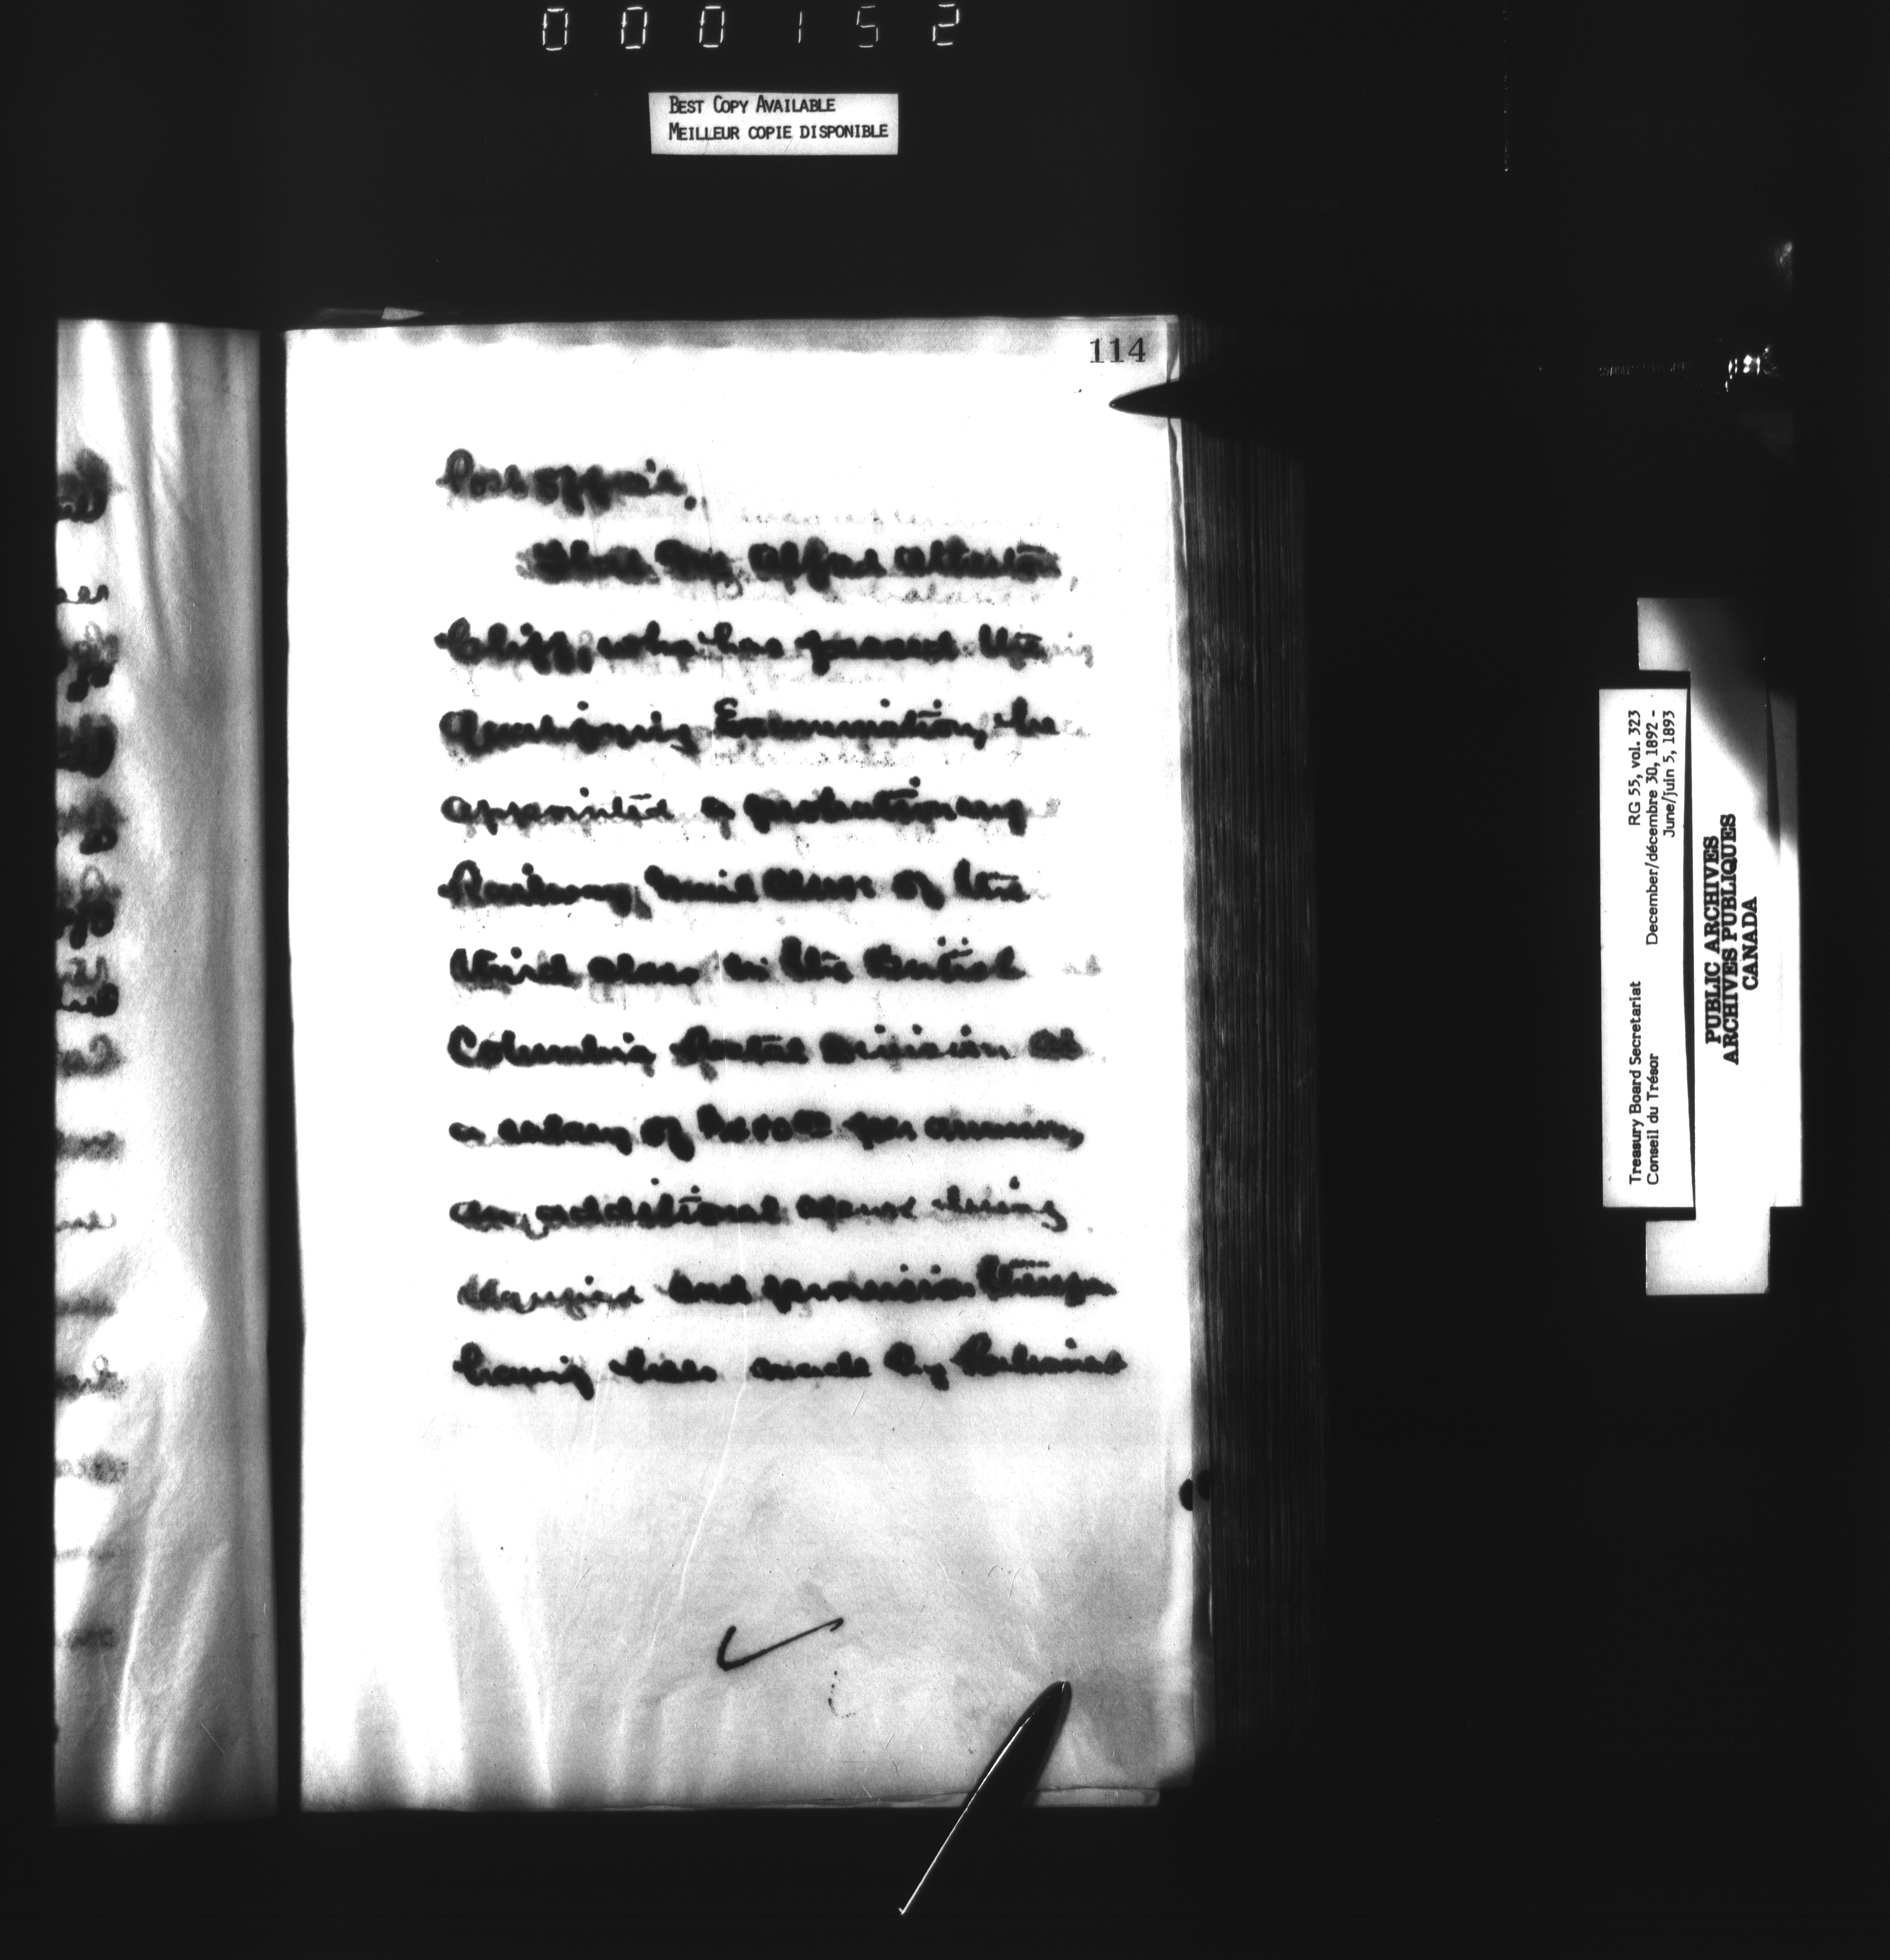 000152
BEST COPY AVAILABLE
MEILLEUR COPIE DISPONIBLE
114
Post office.
That Mr
who has passed the
Qualifying Examination, be
appointed a probationary
Railway Mail Clerk of the
third class in the British
Columbia Postal Division at
a salary of per annum,
an additional Clerk being
required and provision therefor
having been made by Parliament
Treasury Board Secretariat RG 55, vol. 323
Conseil du Trésor December/décembre 30, 1892 -
June/juin 5, 1893
PUBLIC ARCHIVES
ARCHIVES PUBLIQUES
CANADA